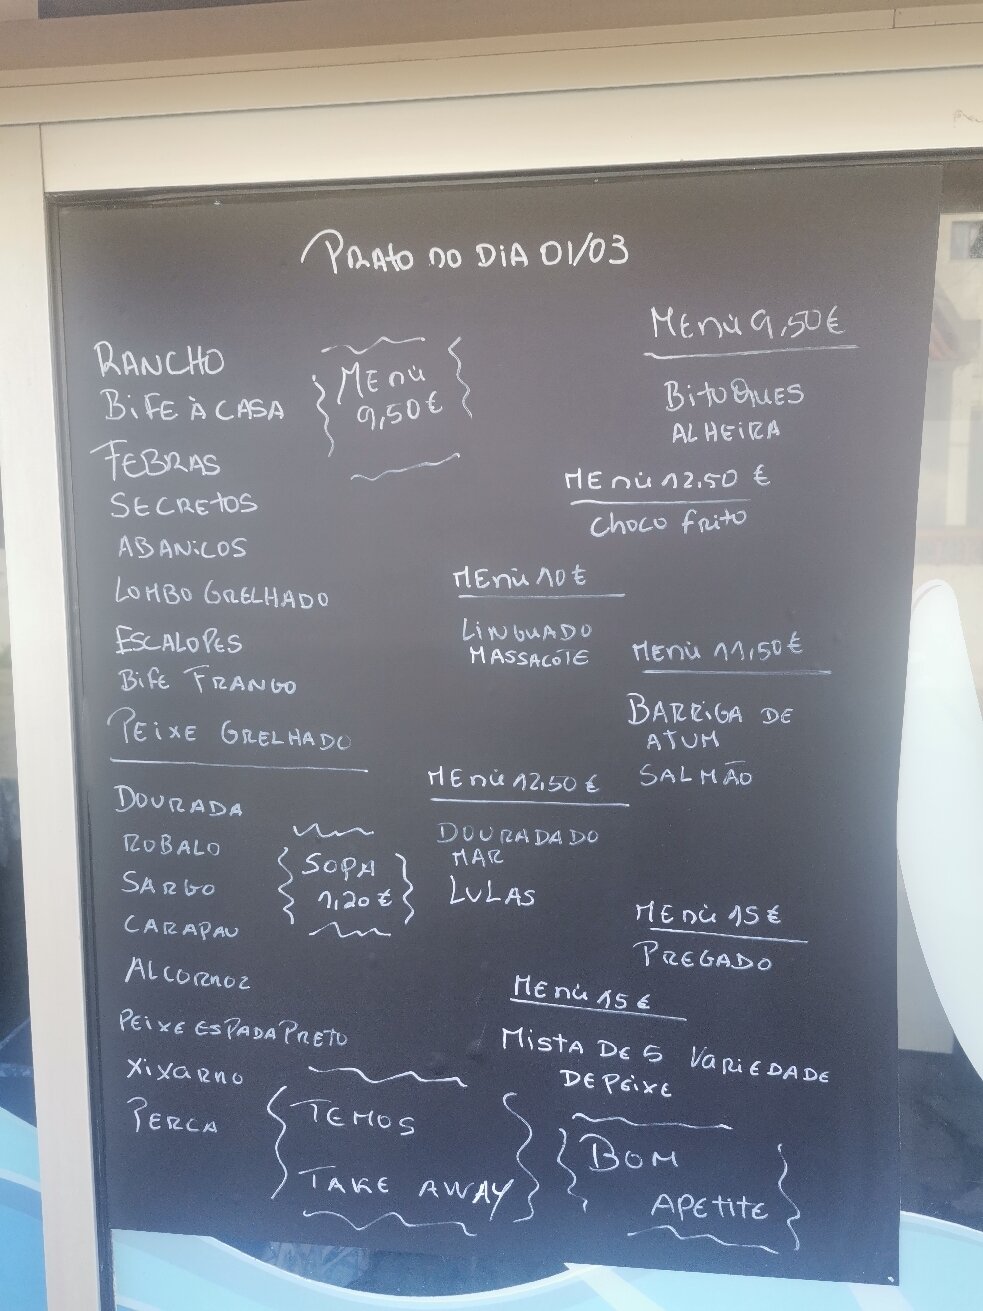 PRATO DO DIA 01/03
RANCHO
BIFE À CASA
FEBRAS
SECRETOS
ABANICOS
LOMBO GRELHADO
ESCALOPES
BIFE FRANGO
MENÙ
9,50€
PEIXE GRELHADO
DOURADA
ROBALO
SARGO
CARAPAU
ALCORNOZ
PEIXE ESPADA PRETO
XIXARNO
PERCA
SOPA
1,20€
MENÙ 9,50€
BITOQUES
ALHEIRA
MENÙ 12.50 €
CHOCO FRITO
MENÙ 10€
LINGUADO
MASSACOTE
MENÙ 11,50€
BARRIGA DE
ATUM
SALMÃO
MENÙ 12,50 €
DOURADA DO
MAR
LULAS
MENÙ 15€
PREGADO
MENÙ 15€
MISTA DE 5 VARIEDADE
DE PEIXE
TEMOS
TAKE AWAY
BOM
APETITE